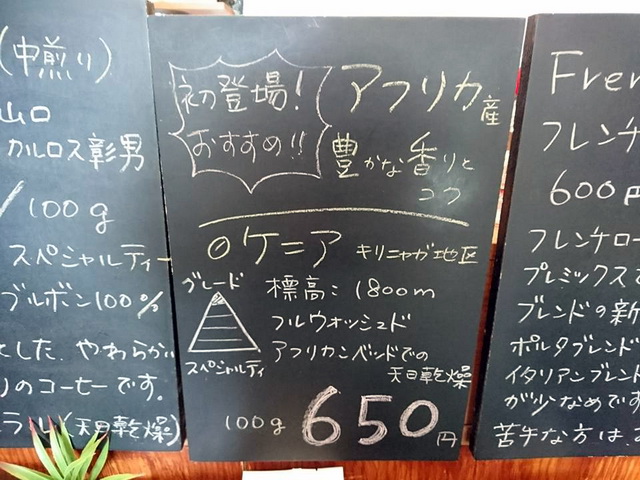 (中煎り)
山口
カルロス彰男
100g
スペシャルティー
ブルボン100%
とした、やわらかい
りのコーヒーです。
ラル(天日乾燥)
初登場!
おすすめ!!
アフリカ産
豊かな香りと
コク
○ケニア キリニャガ地区
グレード
スペシャルティ
標高:1800m
フルウォッシュド
アフリカンベッドでの
天日乾燥
100g 650円
Fren
フレンチ
600円
フレンチロー
プレミックスス
ブレンドの新
ポルタブレンド
イタリアンブレンド
が少なめです
苦手な方は